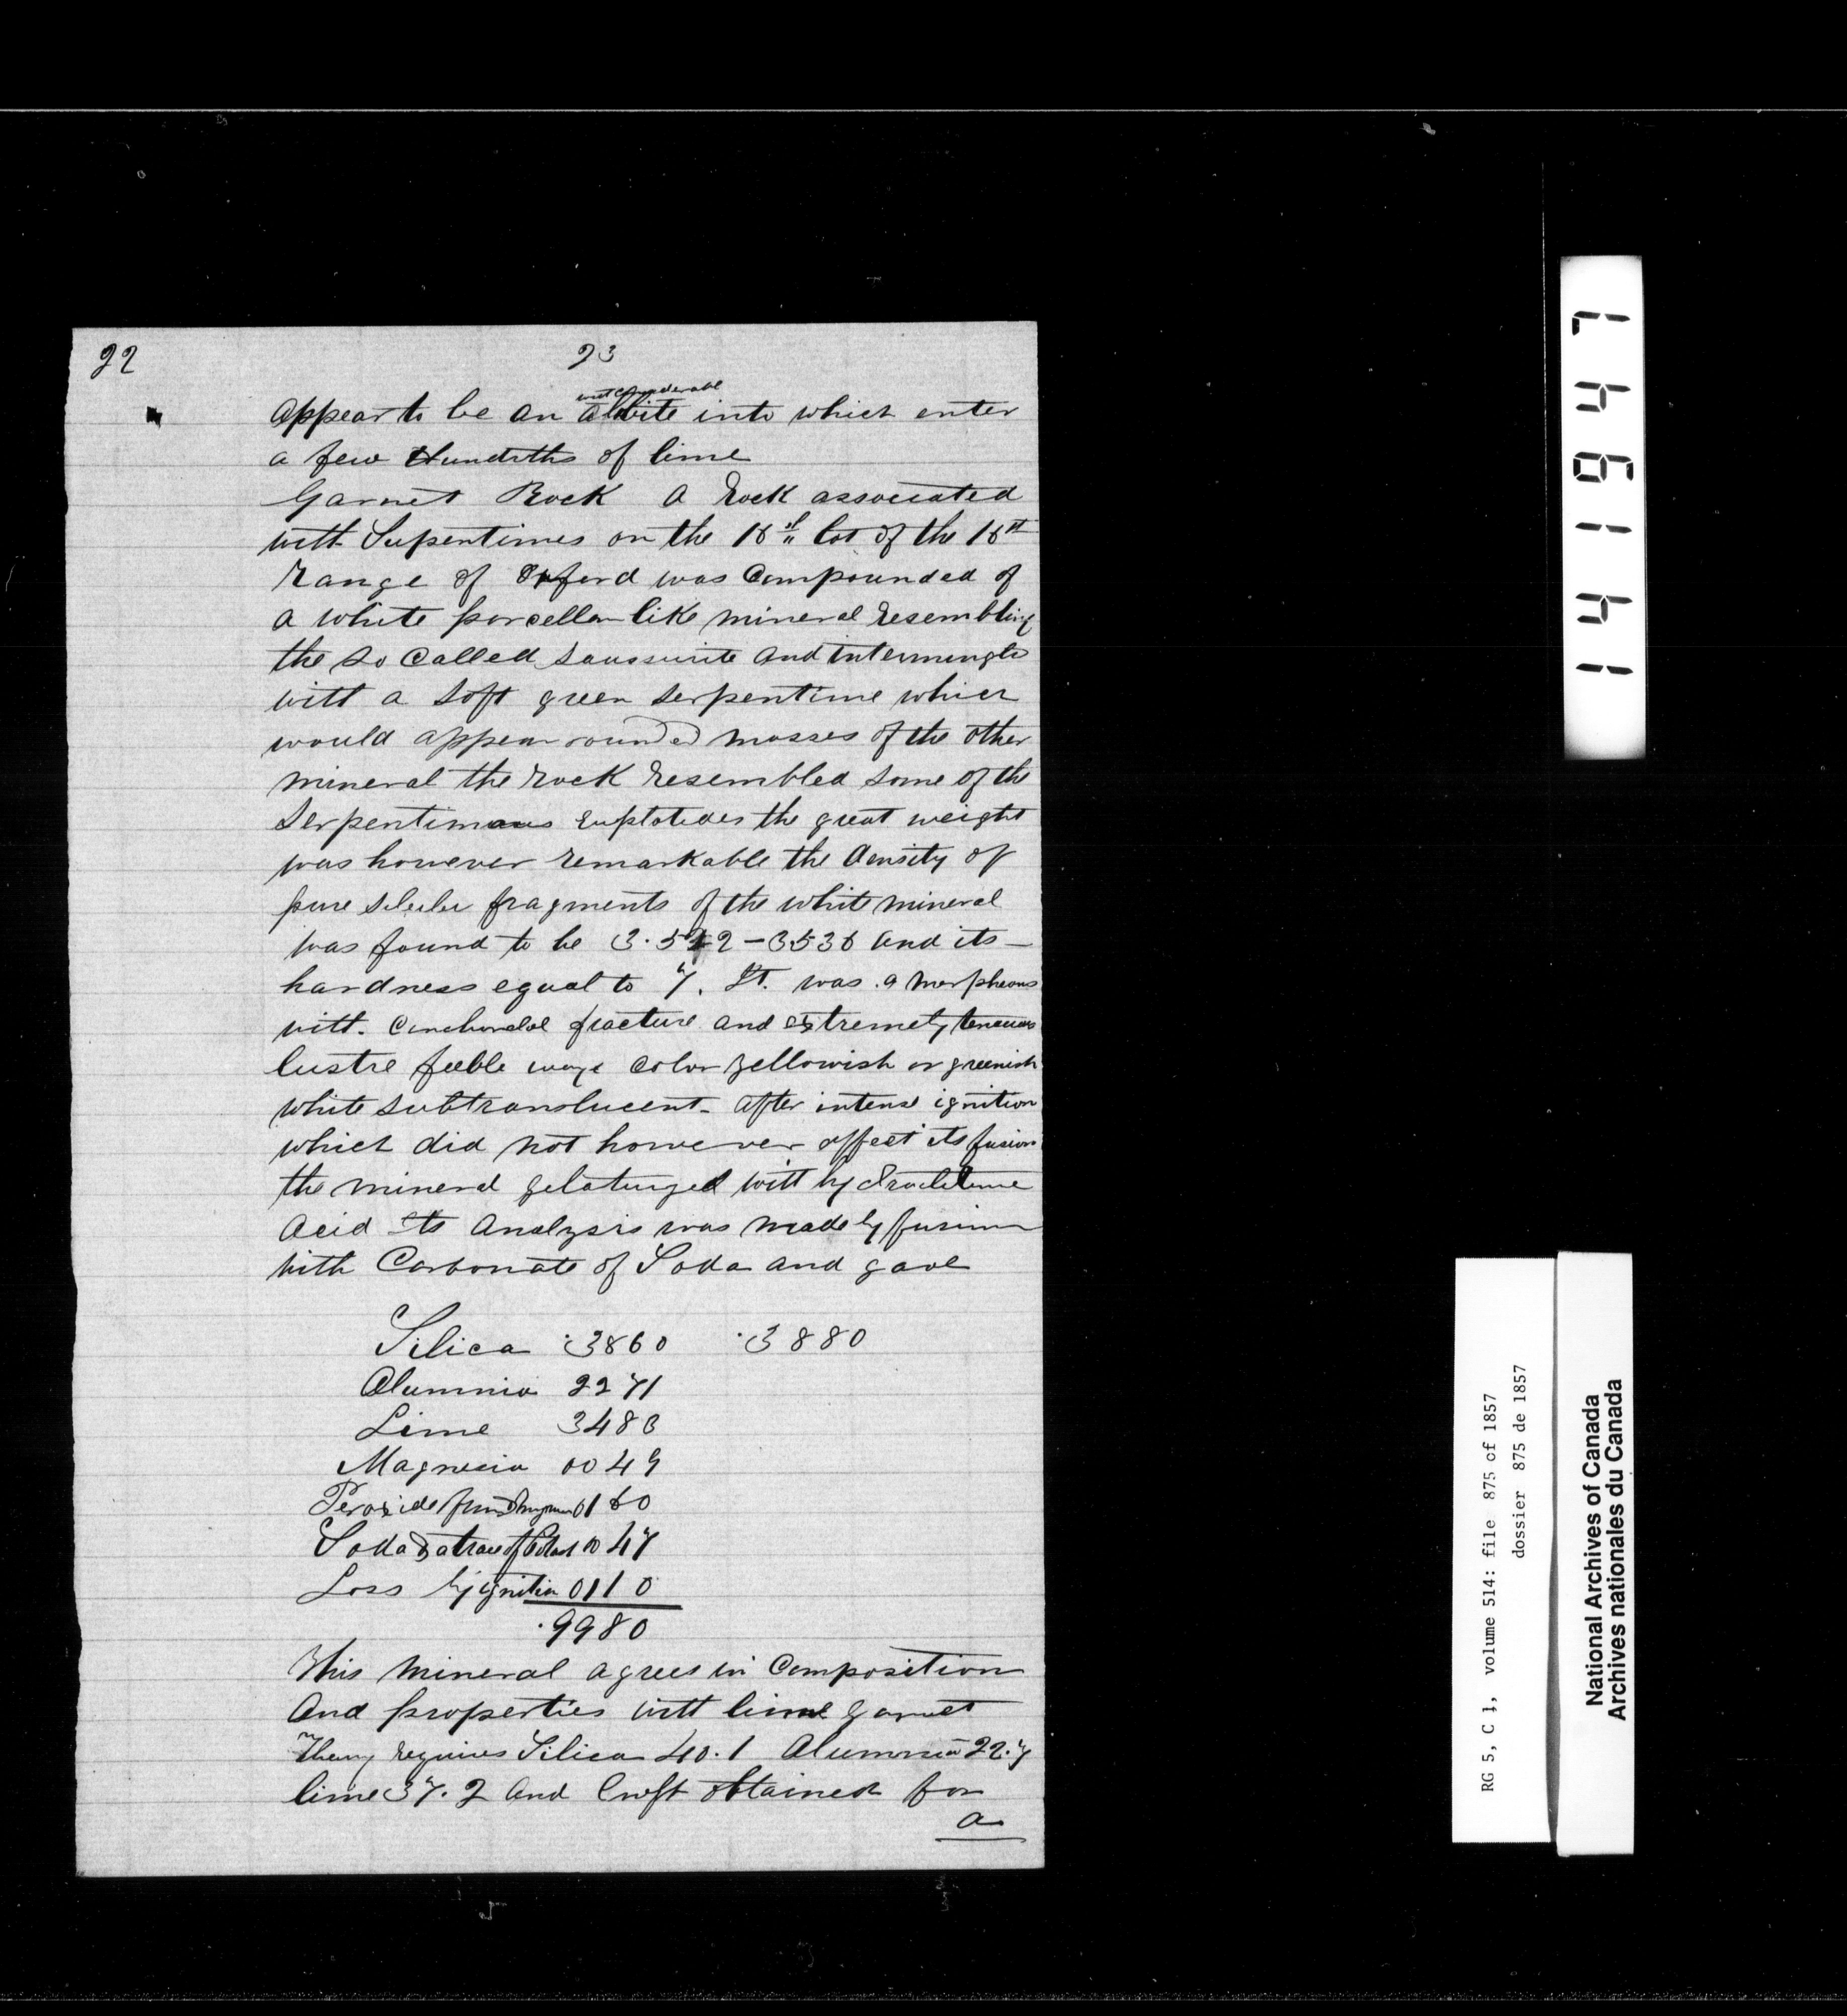 22
23
appear to be an albite into which enter
a few Hundrths of lime
Garnet Rock a Rock associated
with Supentimes on the 18th lot of the 18th
range of Orford was Compounded of
a white porcellan like mineral resembling
the so called saussurite and intermingle
with a soft green serpentime which
would appear rounded masses of the other
mineral the rock resembled some of the
Serpentimous euphotides the great weight
was however remarkable the density of
pure fragments of the white mineral
was found to be 3.522 - 3536 and its
hardness equal to 7. It was amorpheous
with conchoidal fracture and extremely tenacious
lustre feeble waxy color yellowish or greenish
white subtranslucent. after intense ignition
which did not however affect its fusion
the mineral gelatinized with
Acid Its Analysis was made by fusion
with Carbonate of Soda and gave
Silica .3860 .3880
Alumnia 2271
Lime 3483
Magnesia 0049
Peroxide 0160
Soda & a trace of Potash 0047
Loss by ignition 0110
.9980
This mineral agrees in Composition
and properties with lime garnet
Theory requires Silica 40.1 Alumnia 22.7
lime 37.2 and Croft obtained for
a
L4614 1
RG 5, C 1, volume 514: file 875 of 1857
dossier 875 de 1857
National Archives of Canada
Archives nationales du Canada